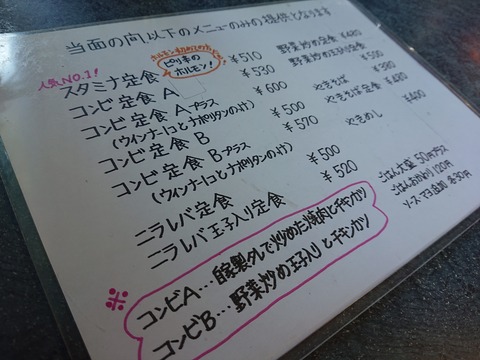 当面の間以下のメニューのみの提供となります
人気NO.1!
スタミナ定食
ピリ辛の
ホルモン!
¥510
コンビ定食 A ¥530
コンビ定食 A プラス ¥600
(ウィンナー1コとナポリタンのけ)
コンビ定食 B ¥500
コンビ定食 B プラス ¥570
(ウィンナー1コとナポリタンのけ)
ニラレバ定食 ¥500
ニラレバ玉子入り定食 ¥520
野菜炒め定食 ¥480
野菜炒め玉子入り定食 ¥500
やきそば ¥380
やきそば定食 ¥480
やきめし ¥400
ごはん大盛 50円プラス
ごはんおかわり 120円
ソース・マヨ追加 各30円
※
コンビA…自家製タレで炒めた焼肉とチキンカツ
コンビB…野菜炒め玉子入りとチキンカツ